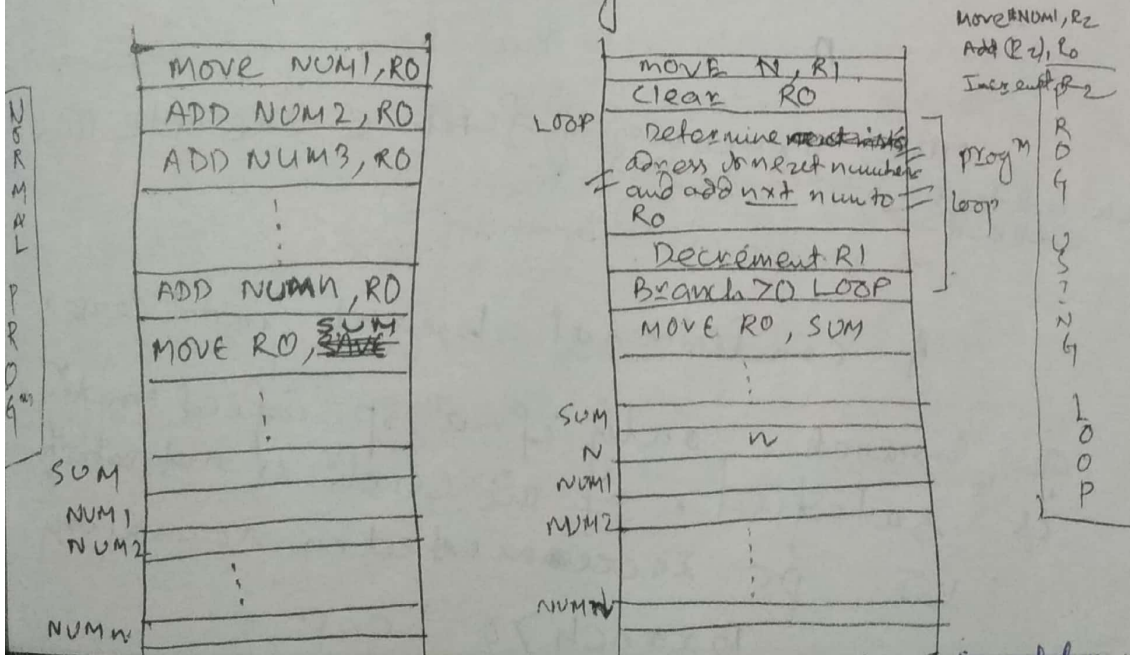 NORMAL PROGm
MOVE NUM1, R0
ADD NUM2, R0
ADD NUM3, R0
ADD NUMn, R0
MOVE R0, SUM
SUM
NUM1
NUM2
NUMn
MOVE N, R1
Clear R0
LOOP
Determine
adress of next number
and add nxt num to
R0
Decrement R1
Branch >0 LOOP
MOVE R0, SUM
progm
loop
SUM
N n
NUM1
NUM2
NUMn
Move #NUM1, R2
Add (R2), R0
Increment R2
PROG USING LOOP